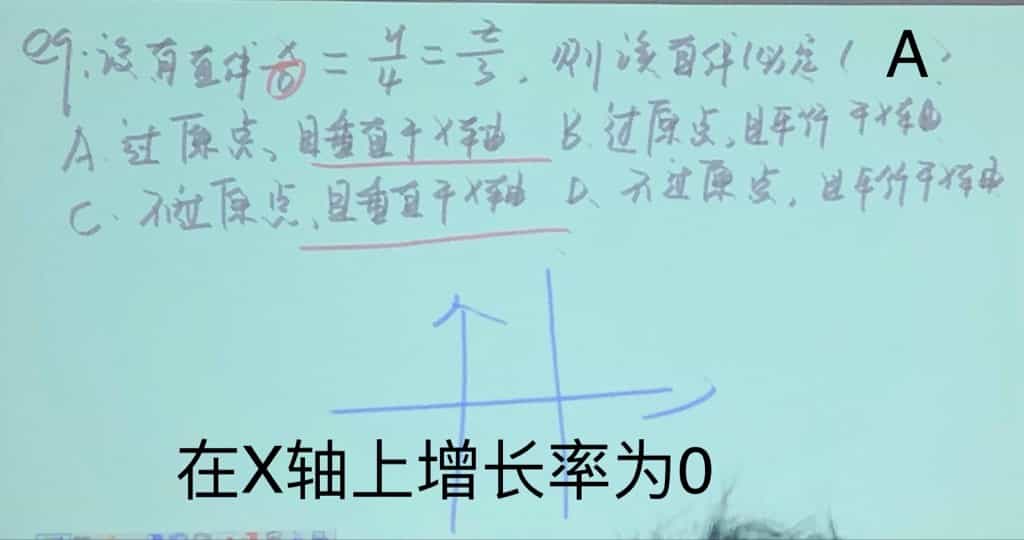 eg:设有直线 x/0 = y/4 = z/3,则该直线必定( A )
A.过原点,且垂直于x轴 B.过原点,且平行于x轴
C.不过原点,且垂直于x轴 D.不过原点,且平行于x轴
在X轴上增长率为0